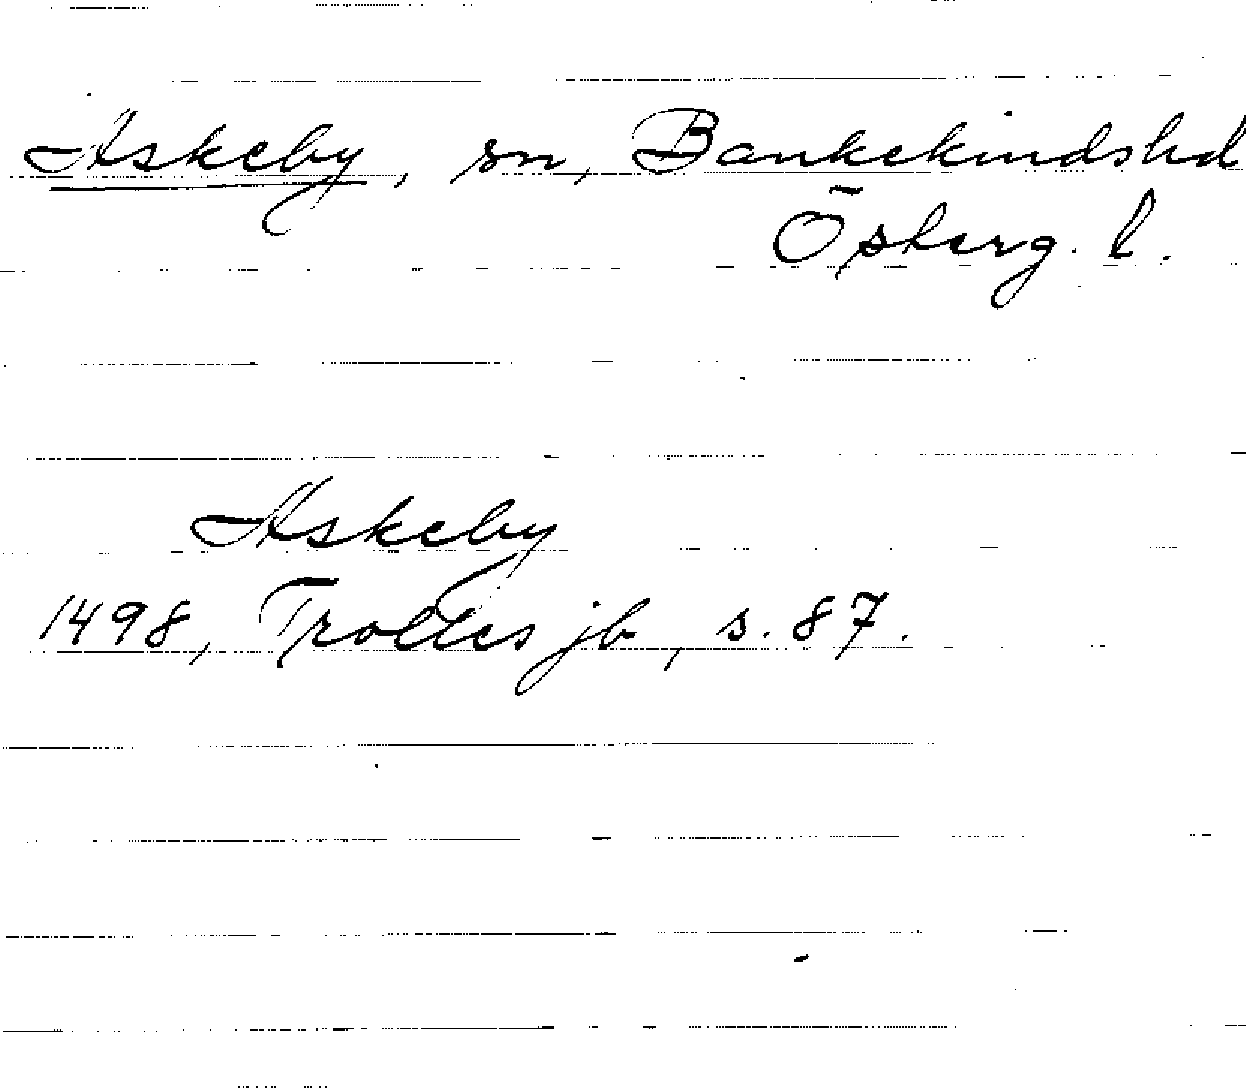 Askeby, sn, Bankekindshd
Österg. l.
Askeby
1498, Trolles jb, s. 87.